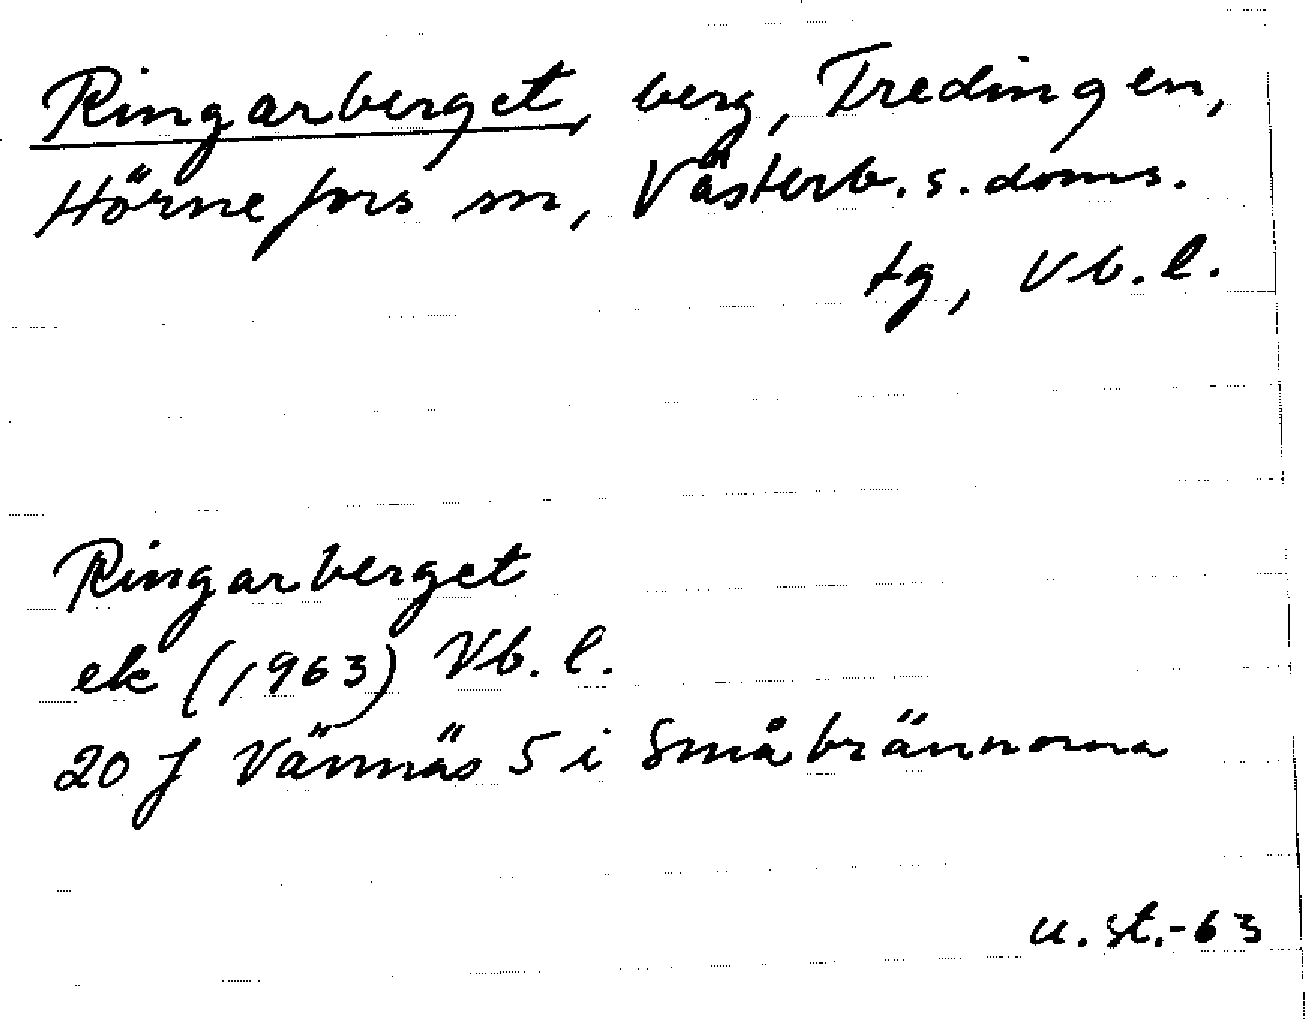 Ringarberget, berg, Tredingen,
Hörnefors sn, Västerb. s. doms.
tg, Vb. l.
Ringarberget
ek (1963) Vb. l.
20 J Vännäs 5 i Småbrännorna
u. st.-63